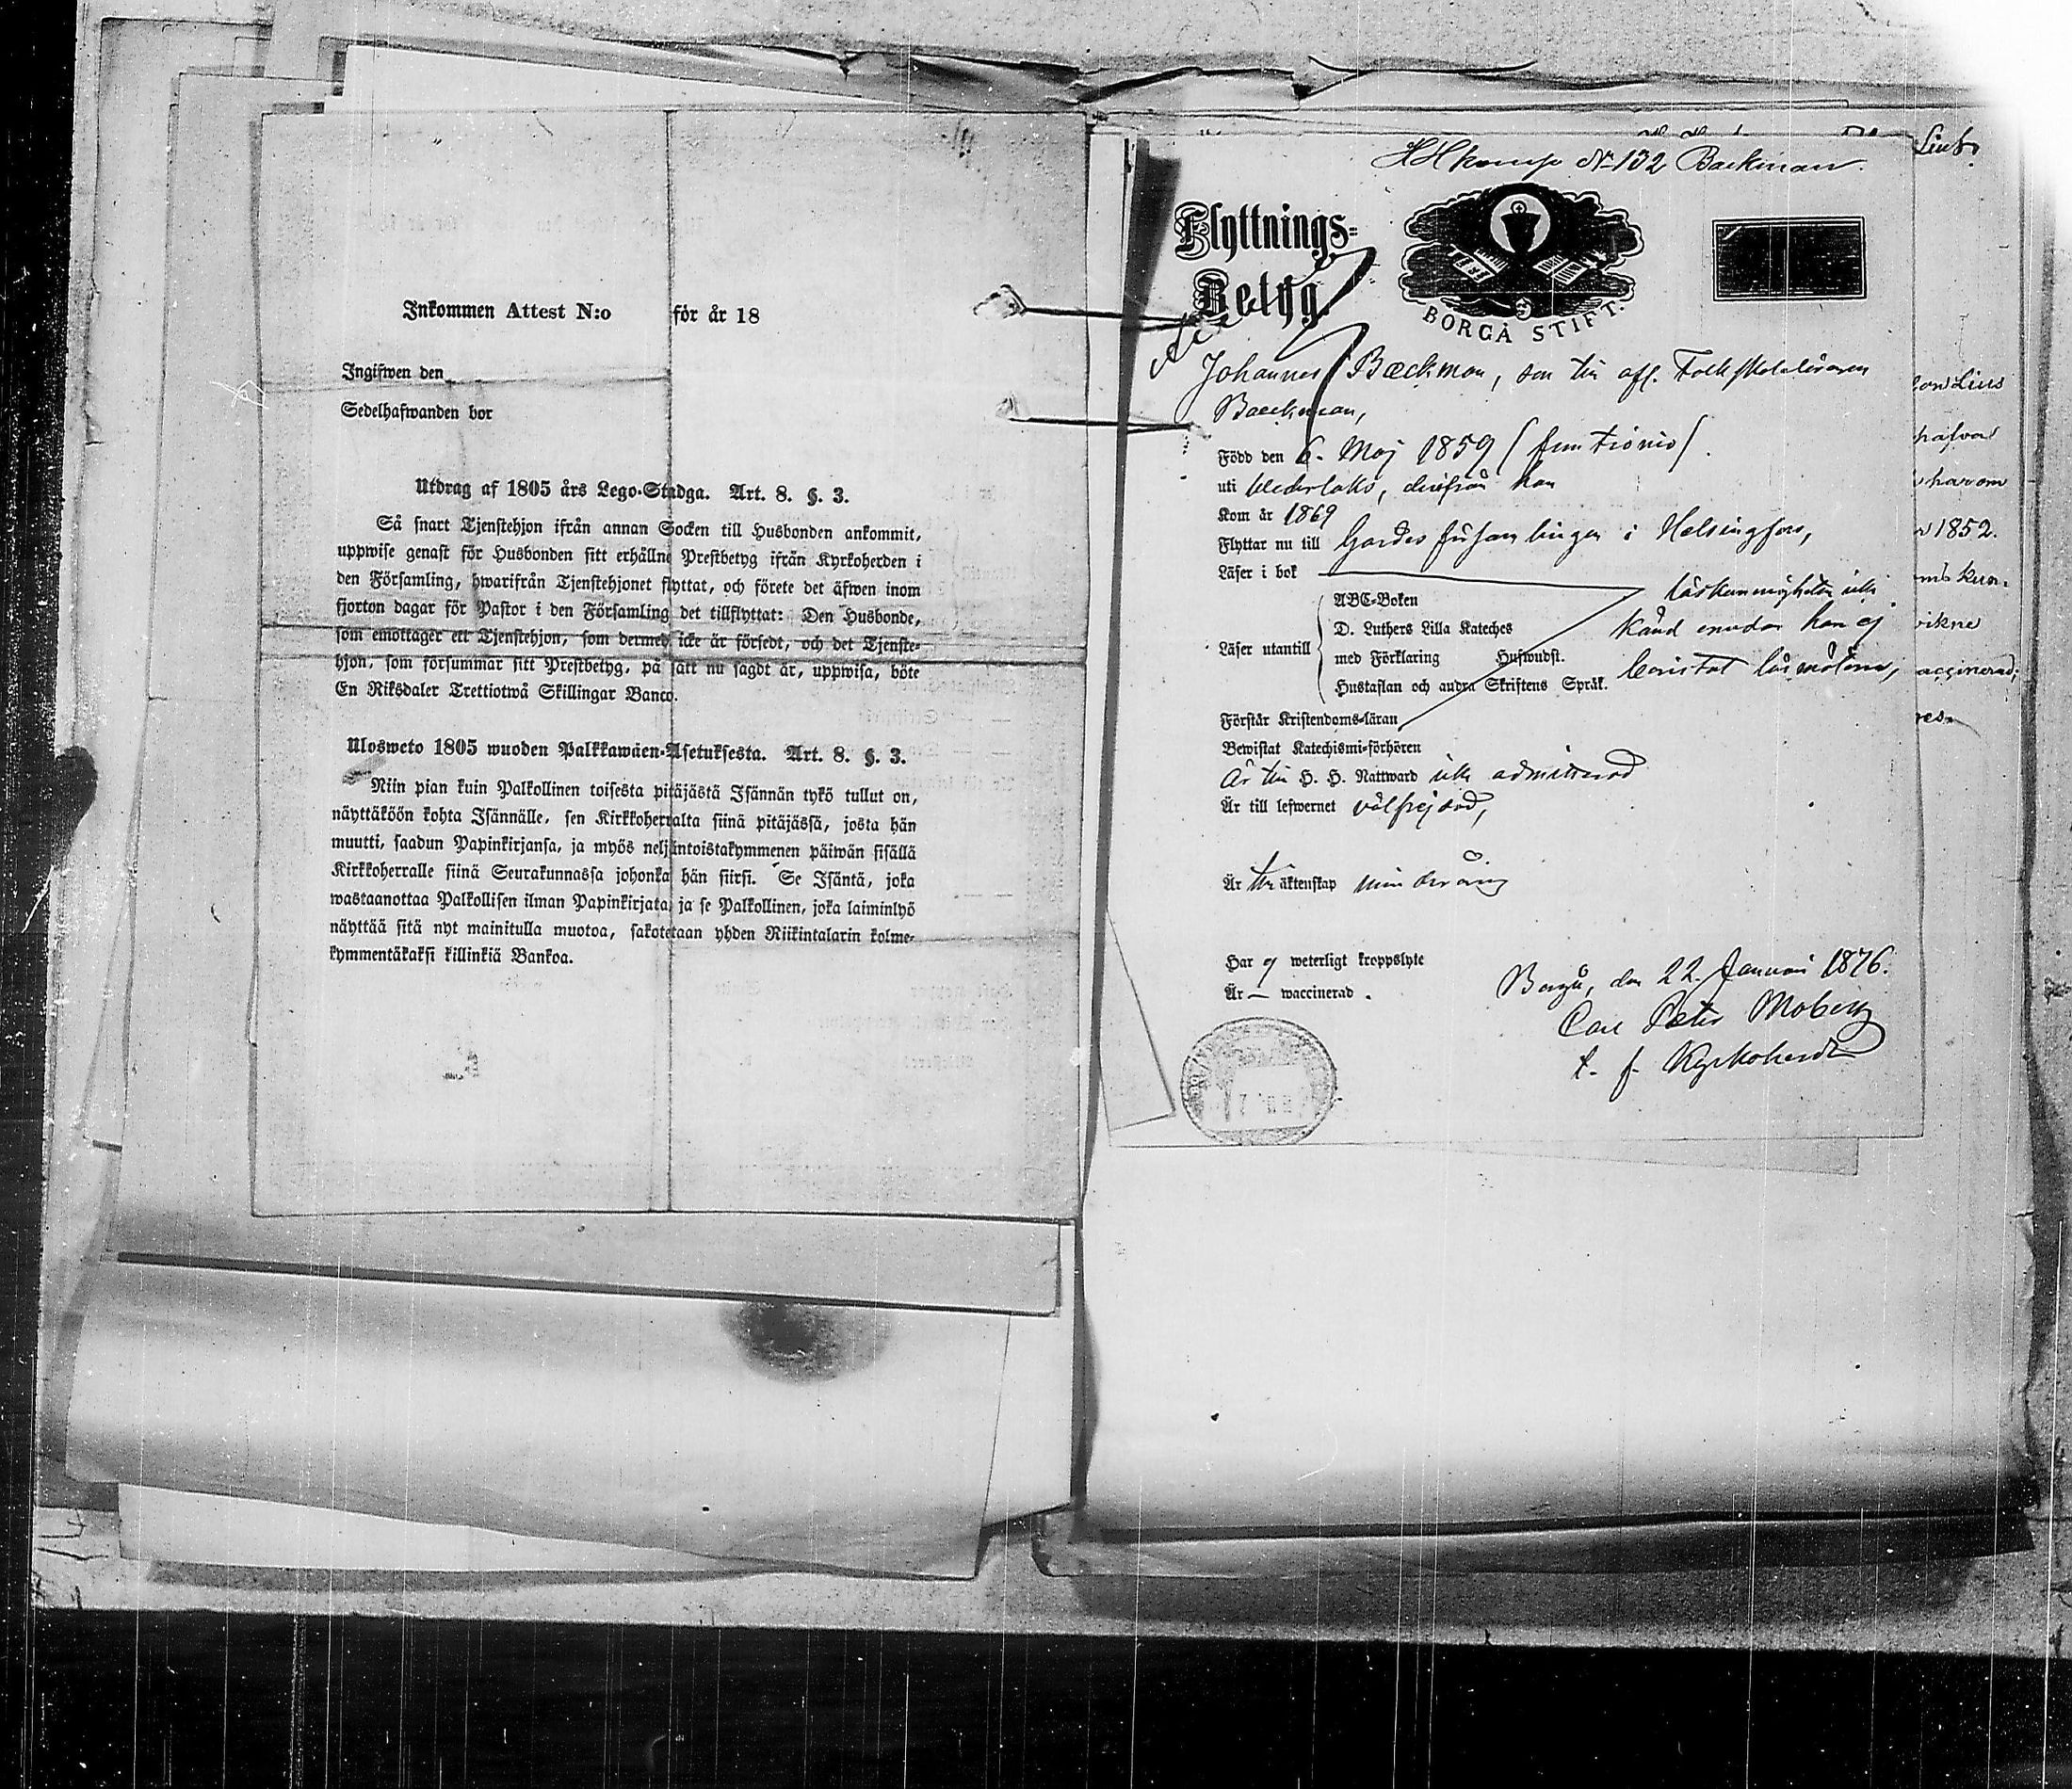 Inkommen Attest N:o för år 18
Ingifwen den
Sedelhafwanden bor
Utdrag af 1805 års Lego-Stadga. Art. 8. §. 3.
Så snart Tjenstehjon ifrån annan Socken till Husbonden ankommit,
uppwise genast för Husbonden sitt erhållne Prestbetyg ifrån Kyrkoherden i
den Församling, hwarifrån Tjenstehjonet flyttat, och förete det äfwen inom
fjorton dagar för Pastor i den Församling det tillflyttat: Den Husbonde,
som emottager ett Tjenstehjon, som dermed icke är försedt, och det Tjenste-
hjon, som försummar sitt Prestbetyg, på sätt nu sagdt är, uppwisa, böte
En Riksdaler Trettiotwå Skillingar Banco.
Ulosweto 1805 wuoden Palkkawäen-Asetuksesta. Art. 8. §. 3.
Niin pian kuin Palkollinen toisesta pitäjästä Isännän tykö tullut on,
näyttäköön kohta Isännälle, sen Kirkkoherralta siinä pitäjässä, josta hän
muutti, saadun Papinkirjansa, ja myös neljäntoistakymmenen päiwän sisällä
Kirkkoherralle siinä Seurakunnassa johonka hän siirsi. Se Isäntä, joka
wastaanottaa Palkollisen ilman Papinkirjata, ja se Palkollinen, joka laiminlyö
näyttää sitä nyt mainitulla muotoa, sakotetaan yhden Riikintalarin kolme-
kymmentäkaksi killinkiä Bankoa.
No 132 Backman.
Flyttnings-
Betyg.
BORGÅ STIFT.
Johannes Bæckman, son till afl. Folkskoleläraren
Baeckman,
Född den 6. Maj 1859
uti Wederlaks, derifrån han
Kom år 1869
Flyttar nu till Gardes församlingen i Helsingfors,
Läser i bok
läskunnigheten icke
ABC-Boken
D. Luthers Lilla Kateches
känd emedan han ej
Läser utantill
med Förklaring Hufwudst.
bevistat läsmötena,
Hustaflan och andra Skriftens Språk.
Förstår Kristendoms-läran
Bewistat Katechismi-förhören
Är till H. H. Nattward icke admitterad
Är till lefwernet välfrejdad,
Är till äktenskap minderårig
Har ej weterligt kroppslyte
Är — waccinerad.
Borgå, den 22 Januari 1876.
Carl Peter Moberg
t. f. Kyrkoherde
Lius
hafva
harom
1852.